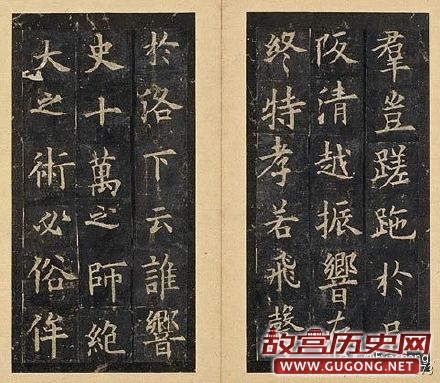 羣豈蹉跎於
阪清越振響
終特孝若飛
於洛下云誰響
史十萬之師絶
大之術必俗侔
故宫历史网
www.GUGONG.NET